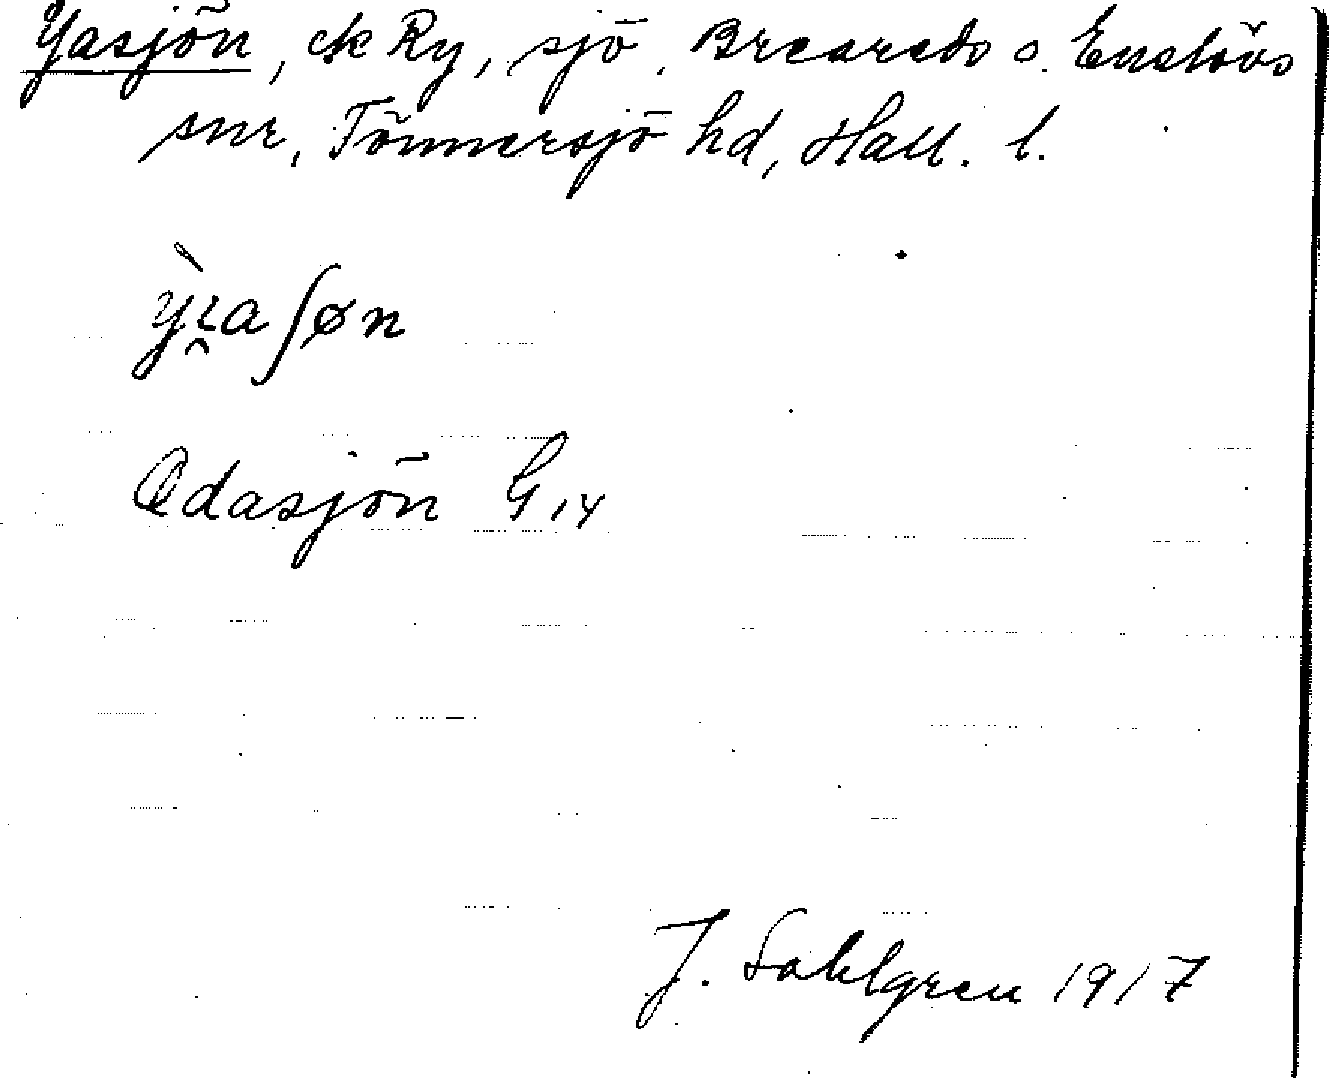 Yasjön, ek Ry, sjö, Breareds o. Enslövs
snr, Tönnersjö hd, Hall. l.
Odasjön G 14
J. Sahlgren 1917